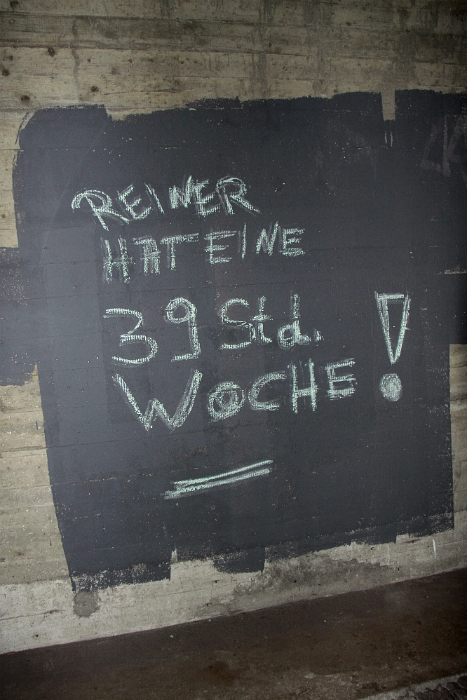 REINER
HAT EINE
39 Std.
WOCHE!